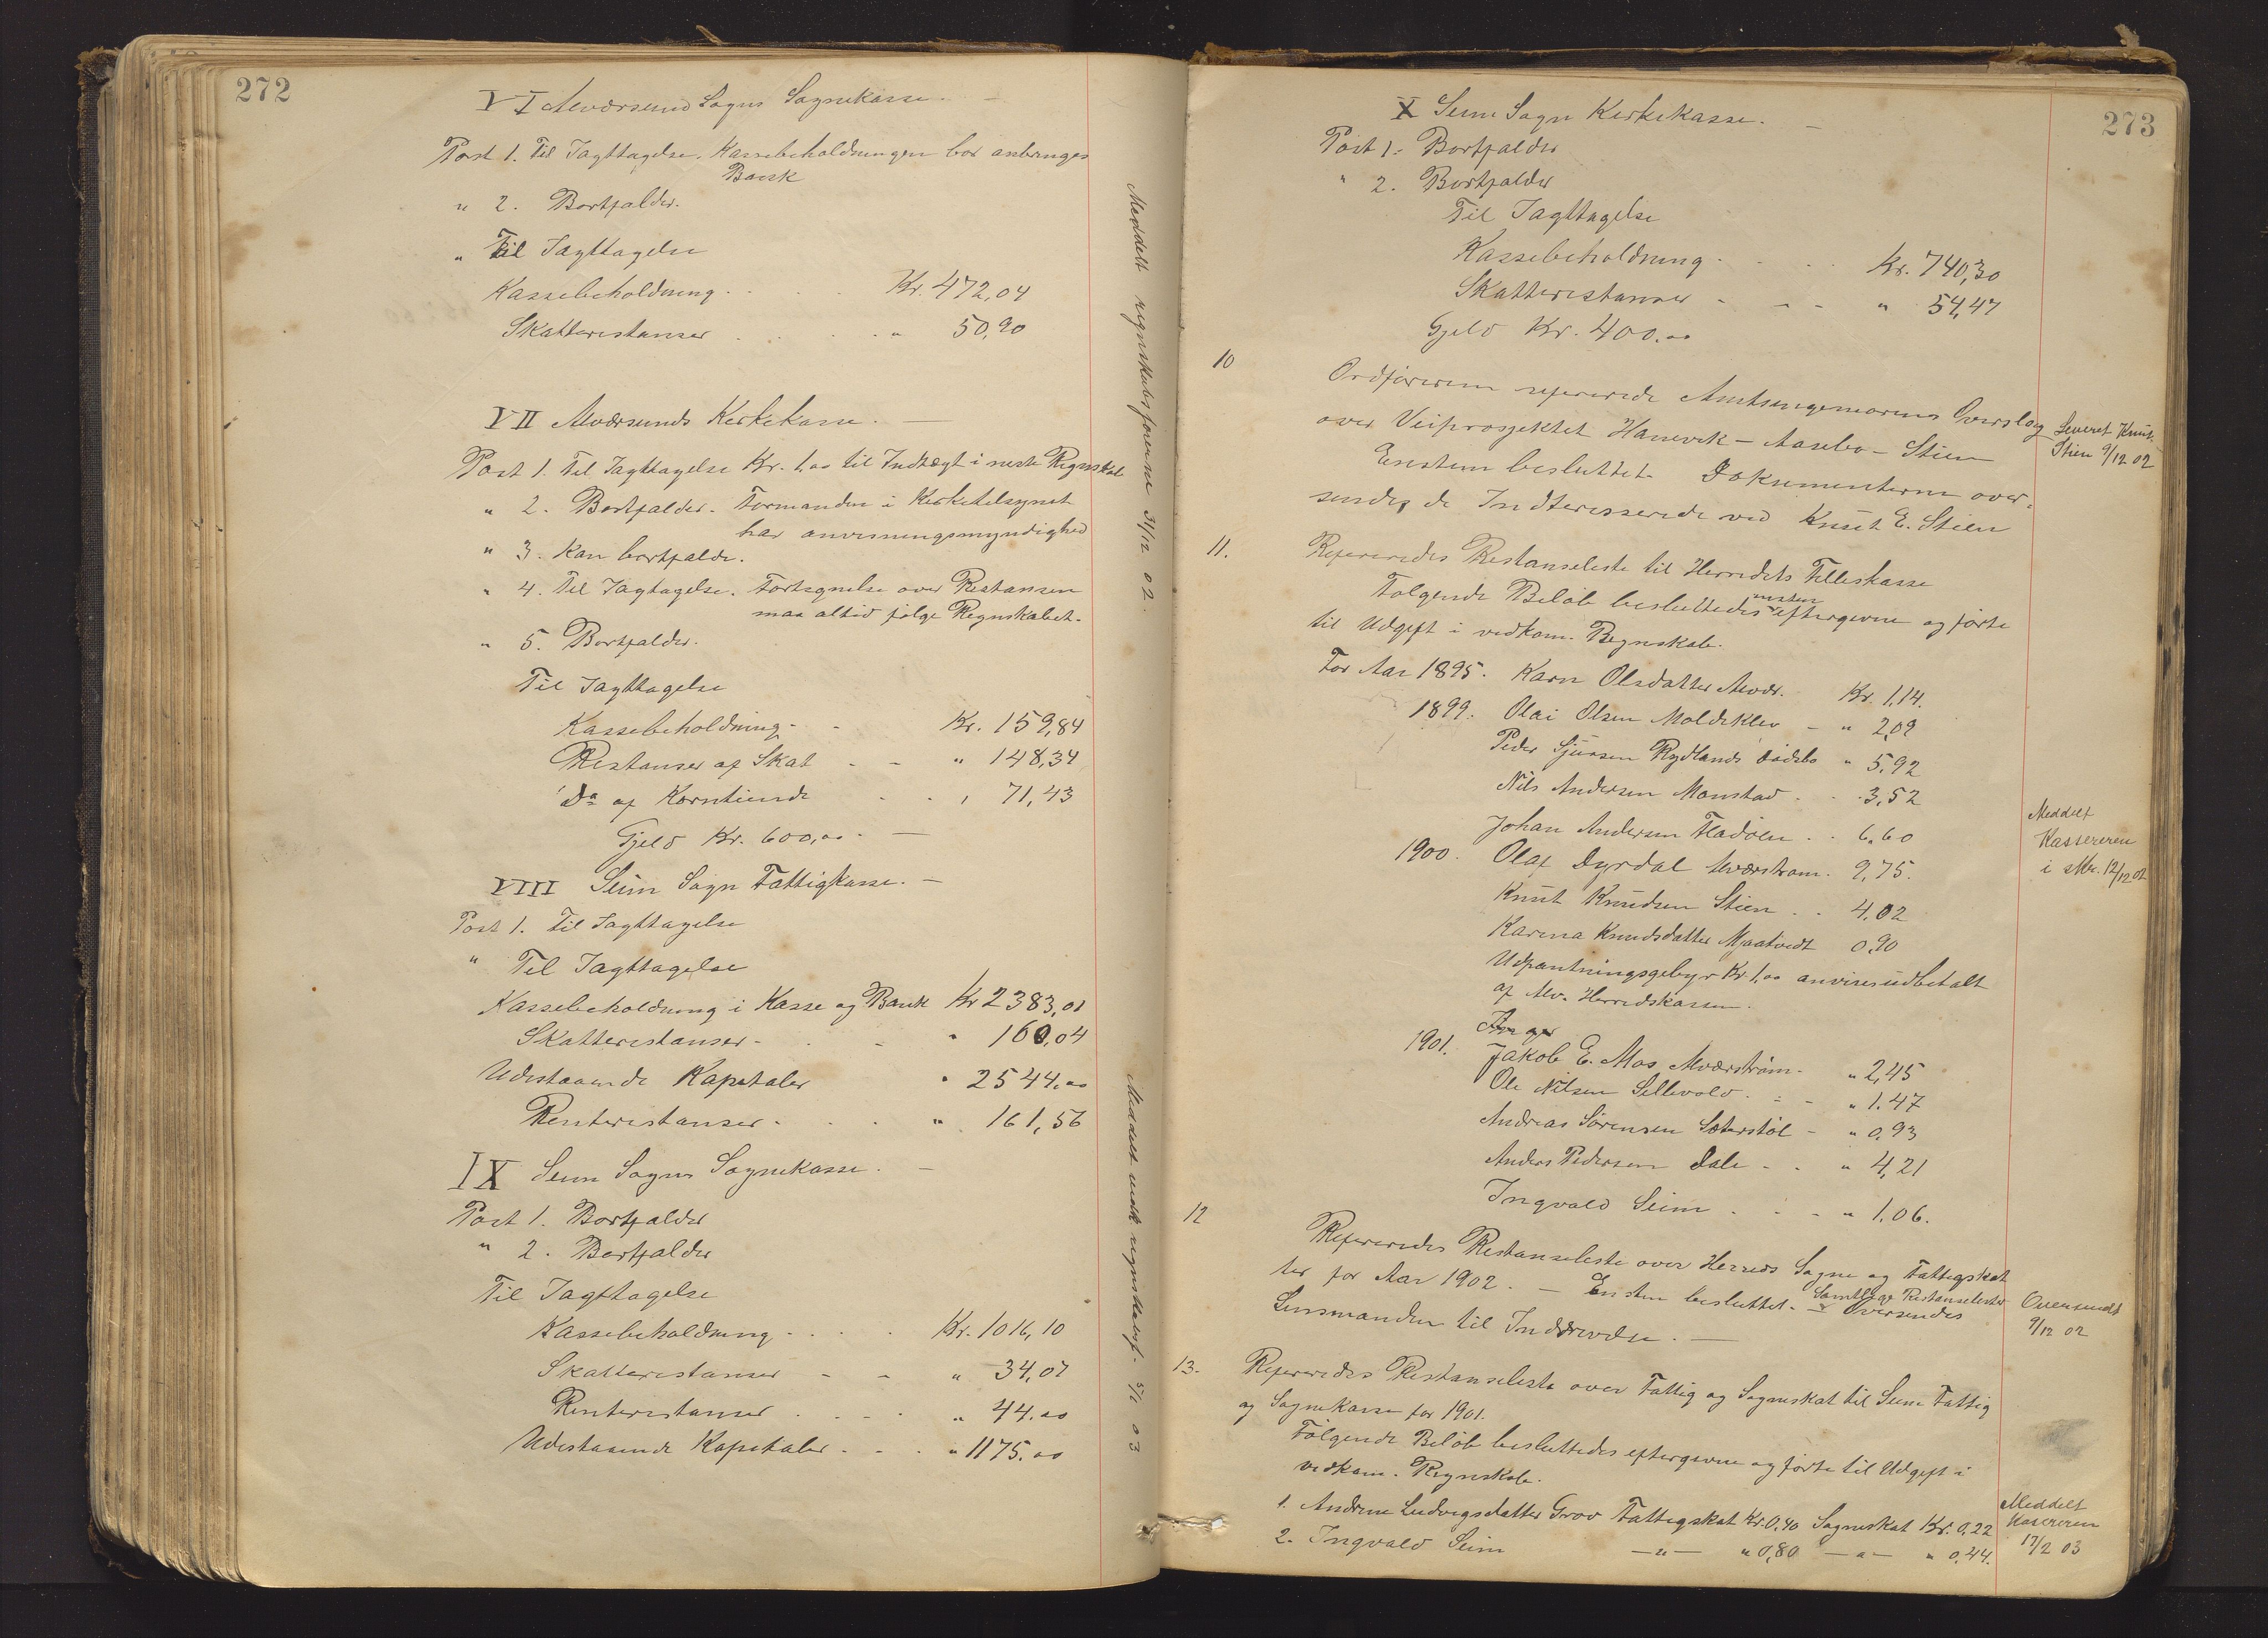 272
VI Alværsund Sogns Sognekasse. —
Post 1. Til Iagttagelse. Kassebeholdningen bør anbringes
Bank
" 2. Bortfalder.
" Til Iagttagelse
Kassebeholdning . . . Kr. 472,04
Skatterestanser . . . . " 50,90
VII Alværsunds Kirkekasse. —
Post 1. Til Iagttagelse Kr. 1,00 til Indtægt i neste Regnskab
" 2. Bortfalder. Formanden i Kirketilsynet
har anvisningsmyndighed
" 3. Kan bortfalde.
" 4. Til Iagtagelse. Fortegnelse over Restansen
maa altid følge Regnskabet.
" 5. Bortfalder.
Til Iagttagelse
Kassebeholdning - - Kr. 159,84
Restanser af Skat - - " 148,34
Do af Korntiende - - " 71,43
Gjeld Kr. 600,00. —
VIII Seim Sogn Fattigkasse. —
Post 1. Til Iagttagelse
" Til Iagttagelse
Kassebeholdning i Kasse og Bank Kr 2383,01
Skatterestanser - . - " 160,04
Udestaaende Kapitaler " 2544.00
Renterestanser - . . " 161,56
IX Seim Sogns Sognekasse. —
Post 1. Bortfalder
" 2. Bortfalder
Til Iagttagelse
Kassebeholdning - . . . Kr. 1016,10
Skatterestanser - - " 34,07
Renterestanser . - - . " 44.00
Udestaaende Kapitaler - . . " 1175.00
Meddelt regnskabsførerne 31/12 02.
Meddelt vedk regnskabsf. 5/1 03
273
X Seim Sogn Kirkekasse. —
Post 1. Bortfalder
" 2. Bortfalder
Til Iagttagelse
Kassebeholdning . . . Kr. 740,30
Skatterestanser - - - " 54,47
Gjeld Kr. 400.00
10
Ordføreren refererede Amtsingeniørens Overslag
over Veiprosjektet Hanevik - Aasebø - Stien
Enstem besluttet. Dokumenterne over-
sendes de Indteresserede ved Knut E. Stien
Leveret Knut
Stien 9/12 02
11.
Refereredes Restanseliste til Herredets Felleskasse
Følgende Beløb besluttedes ensten eftergivne og førte
til Udgift i vedkom. Regnskab.
For Aar 1895. Karn Olsdatter Alvær. Kr. 1,14.
1899. Olai Olsen Moldeklev - " 2,09
Peder Sjursen Rydlands dødsbo " 5,92
Nils Andersen Monstad . - . 3,52
Johan Andersen Fladøen . . 6,60
1900. Olaf Dyrdal Alværstrøm . 2,75.
Knut Knudsen Stien . . 4,02
Karina Knudsdatter Mjaatvedt 0,90
Udpantningsgebyr Kr. 1,00 anvises udbetalt
af Alv. Herredskassen.
1901. Jakob E. Mos Alværstrøm - " 2,45
Ole Nilsen Sellevold . - - " 1.47
Andreas Sørensen Sæterstøl - " 0,93
Anders Pedersen Dale - . " 4,21
Ingvald Seim . . - - " 1,06.
Meddelt
Kassereren
i skr. 12/12 02
12
Refereredes Restanseliste over Herreds Sogne og Fattigskat
ter for Aar 1902. — Ensten besluttet. Samtlige Restanselister Oversendes
Lensmanden til Inddrivelse. —
Oversendt
9/12 02
13.
Refereredes Restanseliste over Fattig og Sogneskat til Seim Fattig
og Sognekasse for 1901.
Følgende Beløb besluttedes eftergivne og førte til Udgift i
vedkom. Regnskab.
1. Andrine Ludvigsdatter Grov Fattigskat Kr. 0,40 Sogneskat Kr. 0,22
2. Ingvald Seim —"— " 0,80 —"— " 0,44.
Meddelt
Kassereren
17/2 03